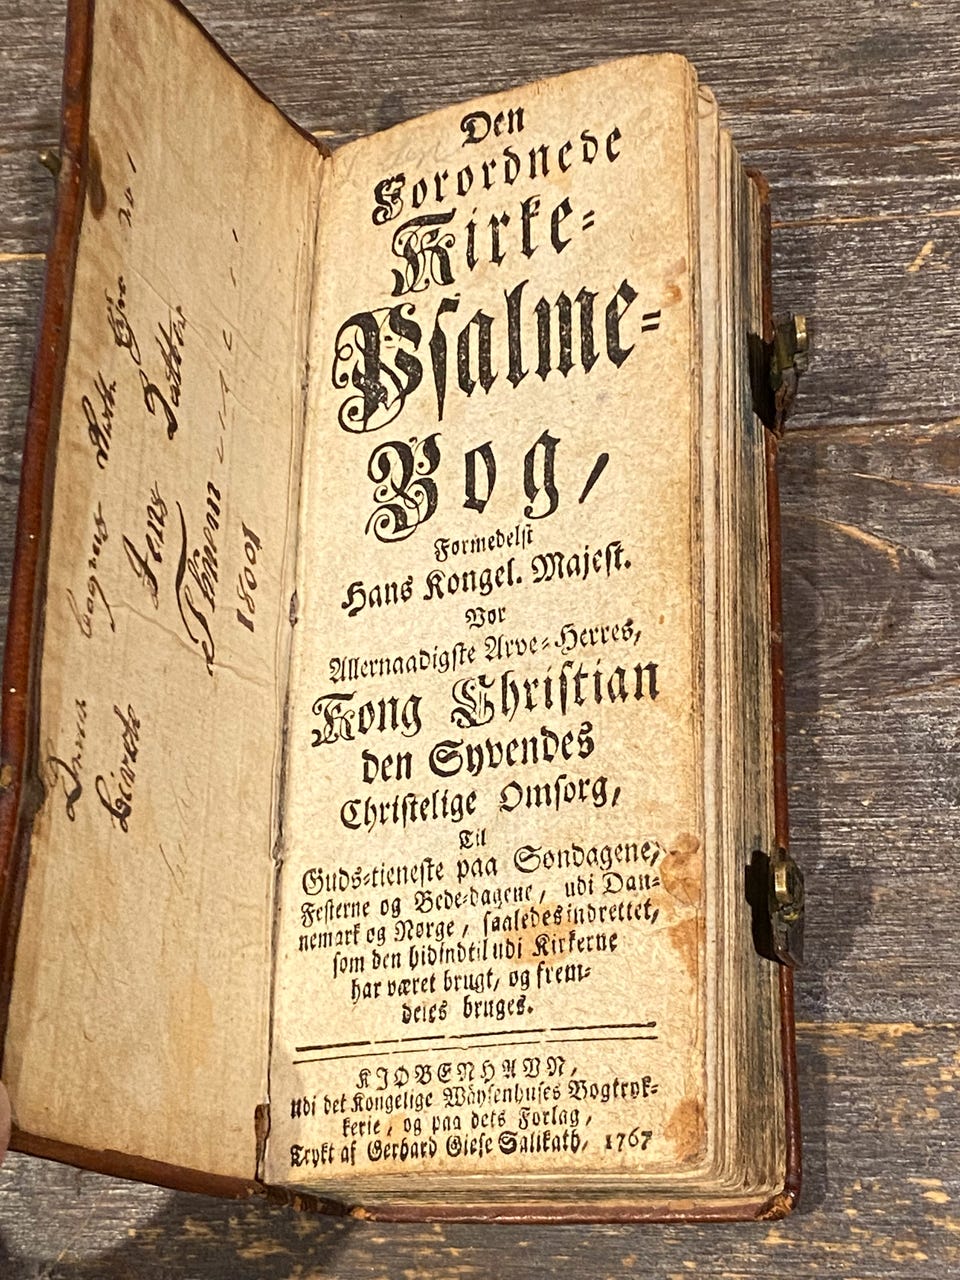 Jens Datter
Thoren
1800 1
Den
Forordnede
Kirke-
Psalme-
Bog,
Formedelst
Hans Kongel. Majest.
Vor
Allernaadigste Arve-Herres,
Kong Christian
den Syvendes
Christelige Omsorg,
Til
Guds-tieneste paa Søndagene,
Festerne og Bede-dagene, udi Dan-
nemark og Norge, saaledes indrettet,
som den hidindtil udi Kirkerne
har været brugt, og frem-
deles bruges.
KIØBENHAVN,
udi det Kongelige Wäysenhuses Bogtryk-
kerie, og paa dets Forlag,
Trykt af Gerhard Giese Salikath, 1767